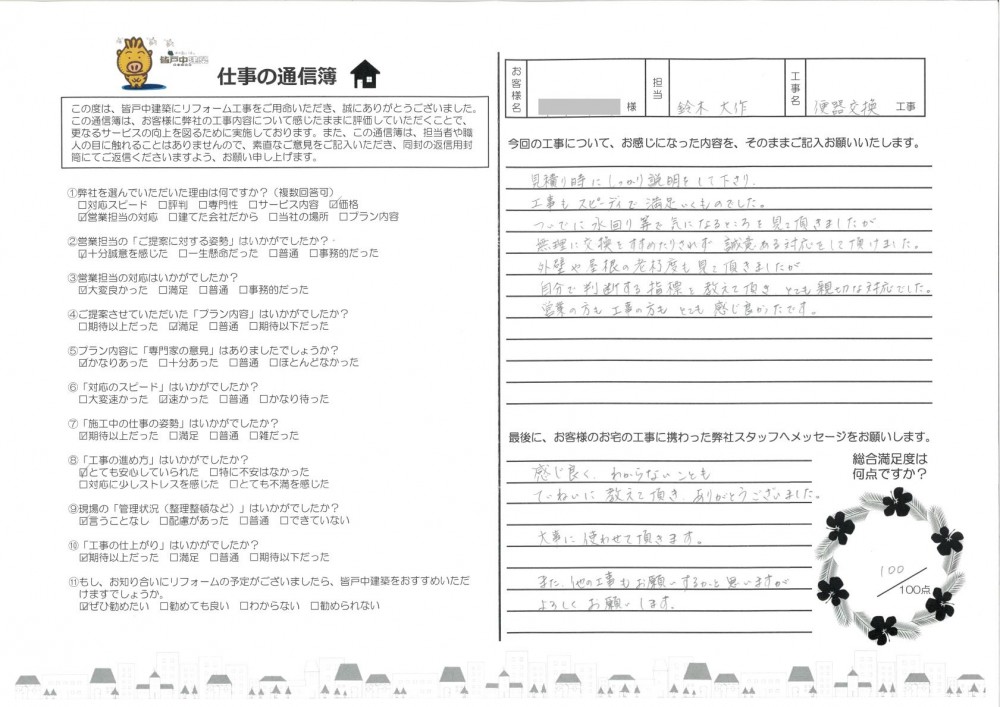 皆戸中建築
仕事の通信簿
この度は、皆戸中建築にリフォーム工事をご用命いただき、誠にありがとうございました。
この通信簿は、お客様に弊社の工事内容について感じたままに評価していただくことで、
更なるサービスの向上を図るために実施しております。また、この通信簿は、担当者や職
人の目に触れることはありませんので、素直なご意見をご記入いただき、同封の返信用封
筒にてご返信くださいますよう、お願い申し上げます。
①弊社を選んでいただいた理由は何ですか？（複数回答可）
□対応スピード □評判 □専門性 □サービス内容 ☑価格
☑営業担当の対応 □建てた会社だから □当社の場所 □プラン内容
②営業担当の「ご提案に対する姿勢」はいかがでしたか？
☑十分誠意を感じた □一生懸命だった □普通 □事務的だった
③営業担当の対応はいかがでしたか？
☑大変良かった □満足 □普通 □事務的だった
④ご提案させていただいた「プラン内容」はいかがでしたか？
□期待以上だった ☑満足 □普通 □期待以下だった
⑤プラン内容に「専門家の意見」はありましたでしょうか？
☑かなりあった □十分あった □普通 □ほとんどなかった
⑥「対応のスピード」はいかがでしたか？
□大変速かった ☑速かった □普通 □かなり待った
⑦「施工中の仕事の姿勢」はいかがでしたか？
☑期待以上だった □満足 □普通 □雑だった
⑧「工事の進め方」はいかがでしたか？
☑とても安心していられた □特に不安はなかった
□対応に少しストレスを感じた □とても不満を感じた
⑨現場の「管理状況（整理整頓など）」はいかがでしたか？
☑言うことなし □配慮があった □普通 □できていない
⑩「工事の仕上がり」はいかがでしたか？
☑期待以上だった □満足 □普通 □期待以下だった
⑪もし、お知り合いにリフォームの予定がございましたら、皆戸中建築をおすすめいただ
けますでしょうか。
☑ぜひ勧めたい □勧めても良い □わからない □勧められない
お客様名 様 担当 鈴木 大作 工事名 便器交換 工事
今回の工事について、お感じになった内容を、そのままご記入お願いいたします。
見積り時にしっかり説明をして下さり、
工事もスピーディで満足いくものでした。
ついでに水回り等で気になるところを見て頂きましたが
無理に交換をすすめたりされず 誠意ある対応をして頂けました。
外壁や屋根の老朽度も見て頂きましたが
自分で判断する指標を教えて頂き とても親切な対応でした。
営業の方も工事の方も とても 感じ良かったです。
最後に、お客様のお宅の工事に携わった弊社スタッフへメッセージをお願いします。
感じ良く、わからないことも
ていねいに 教えて頂き ありがとうございました。
大事に使わせて頂きます。
また、他の工事もお願いするかと思いますが
よろしくお願いします。
総合満足度は
何点ですか？
100
100点